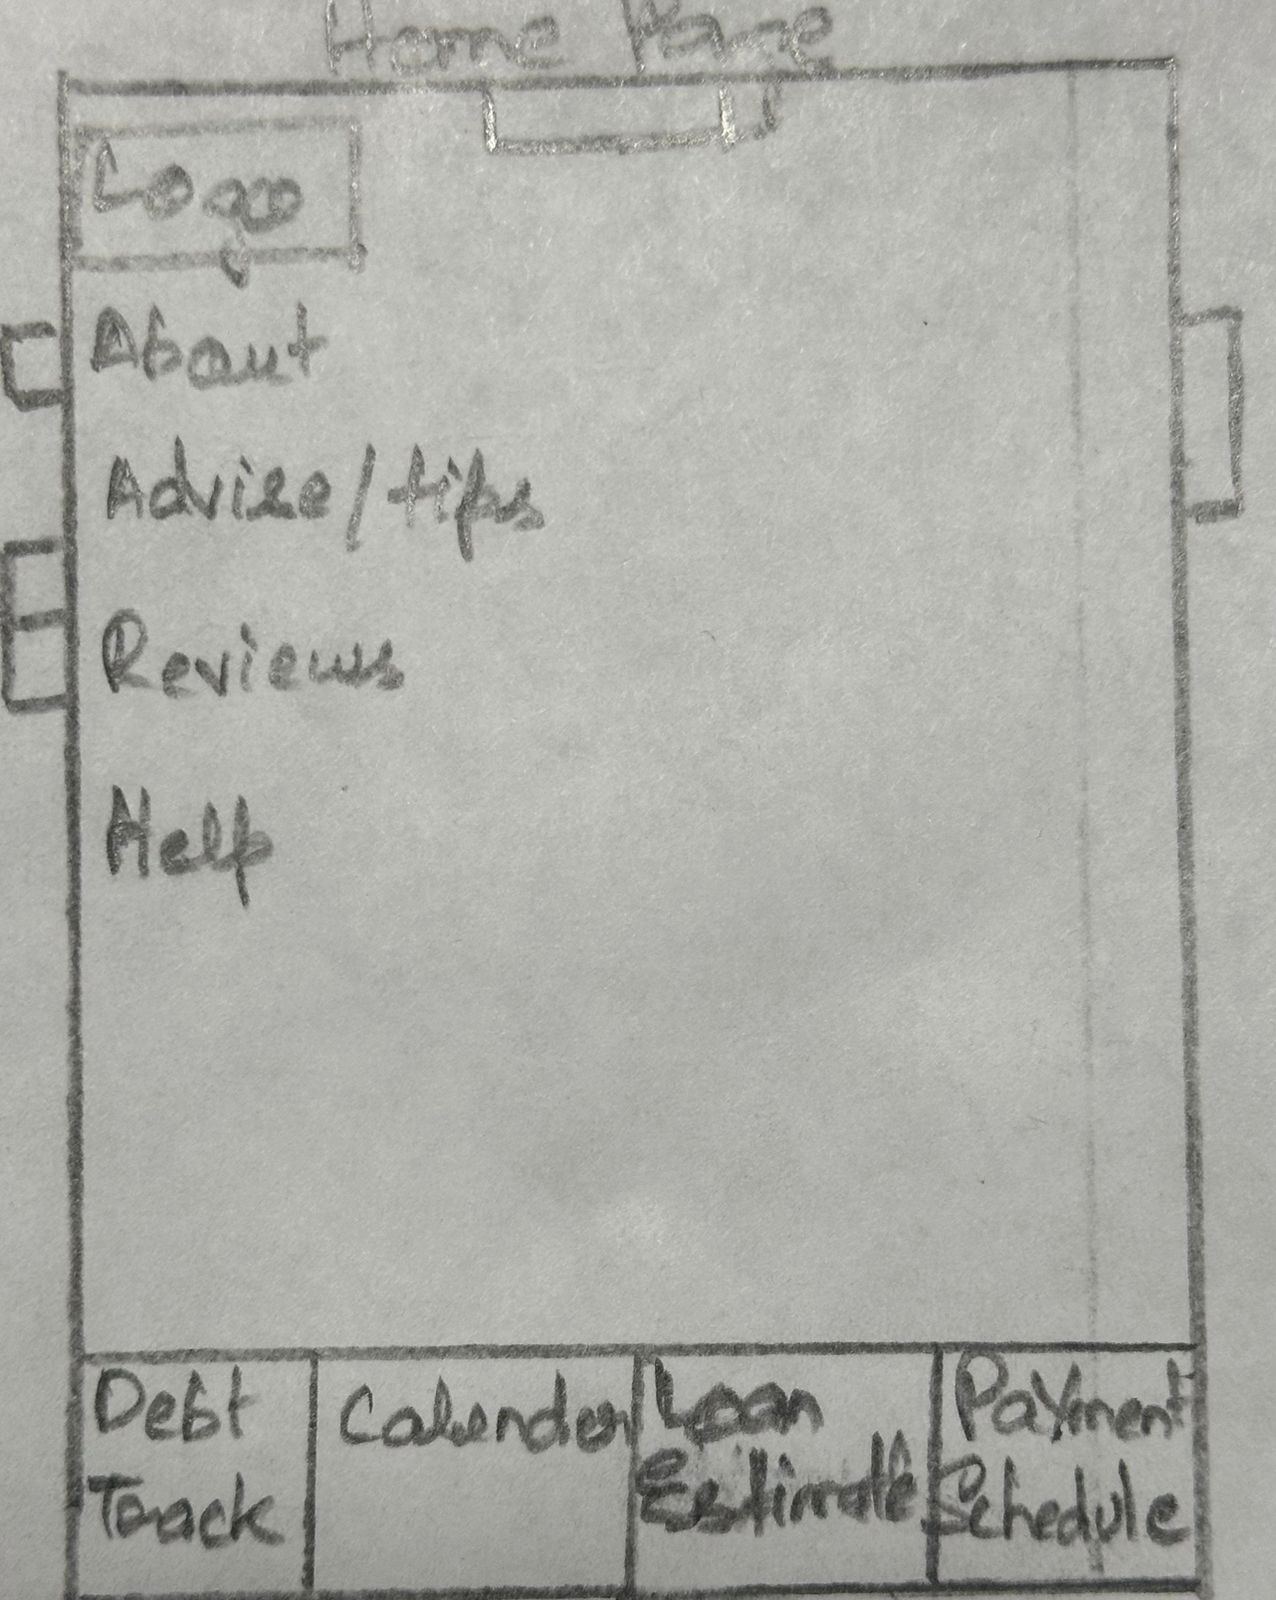 Home Page
Logo
About
Advise/tips
Reviews
Help
Debt
Track
Calender
Loan
Estimate
Payment
Schedule